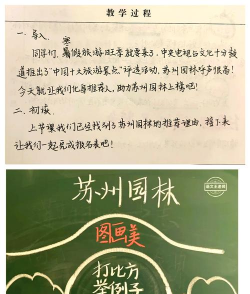 教学过程
一、导入
寒
同学们,暑假旅游旺季就要来了,中央电视台文化十分频
道推出了“中国十大旅游景点”评选活动,苏州园林呼声很高!
今天就让我们化身推荐人,助力苏州园林上榜吧!
二、初读
上节课我们已经找到了苏州园林的推荐理由,接下来
让我们一起完成报名表吧!
苏州园林
图画美
打比方
举例子